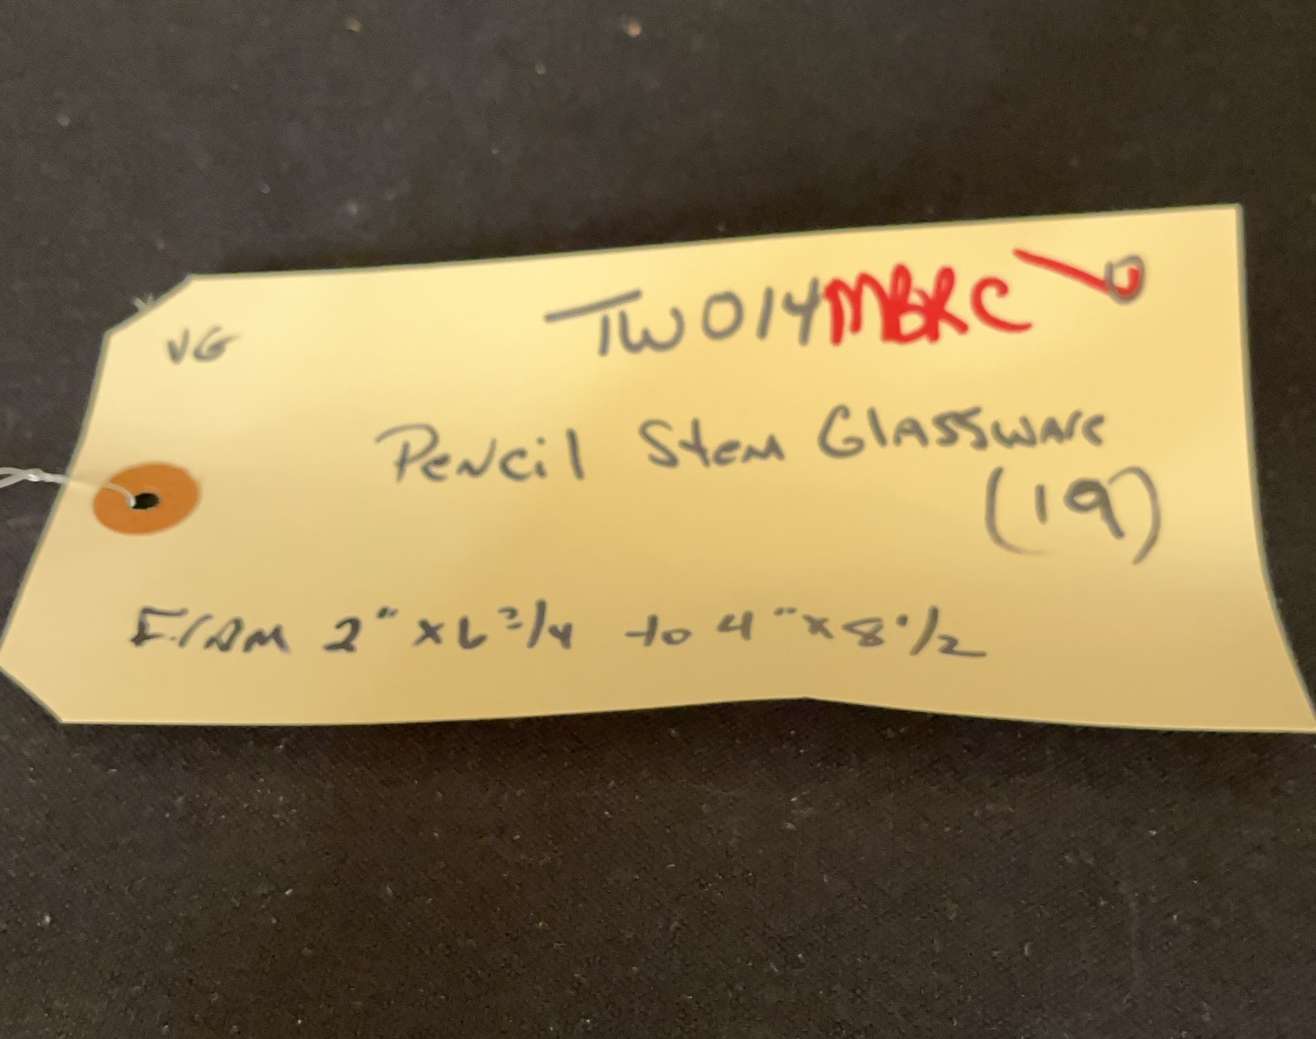 VG
TW014MBRC
Pencil Stem Glassware
(19)
From 2" x 6 3/4 to 4" x 8 1/2